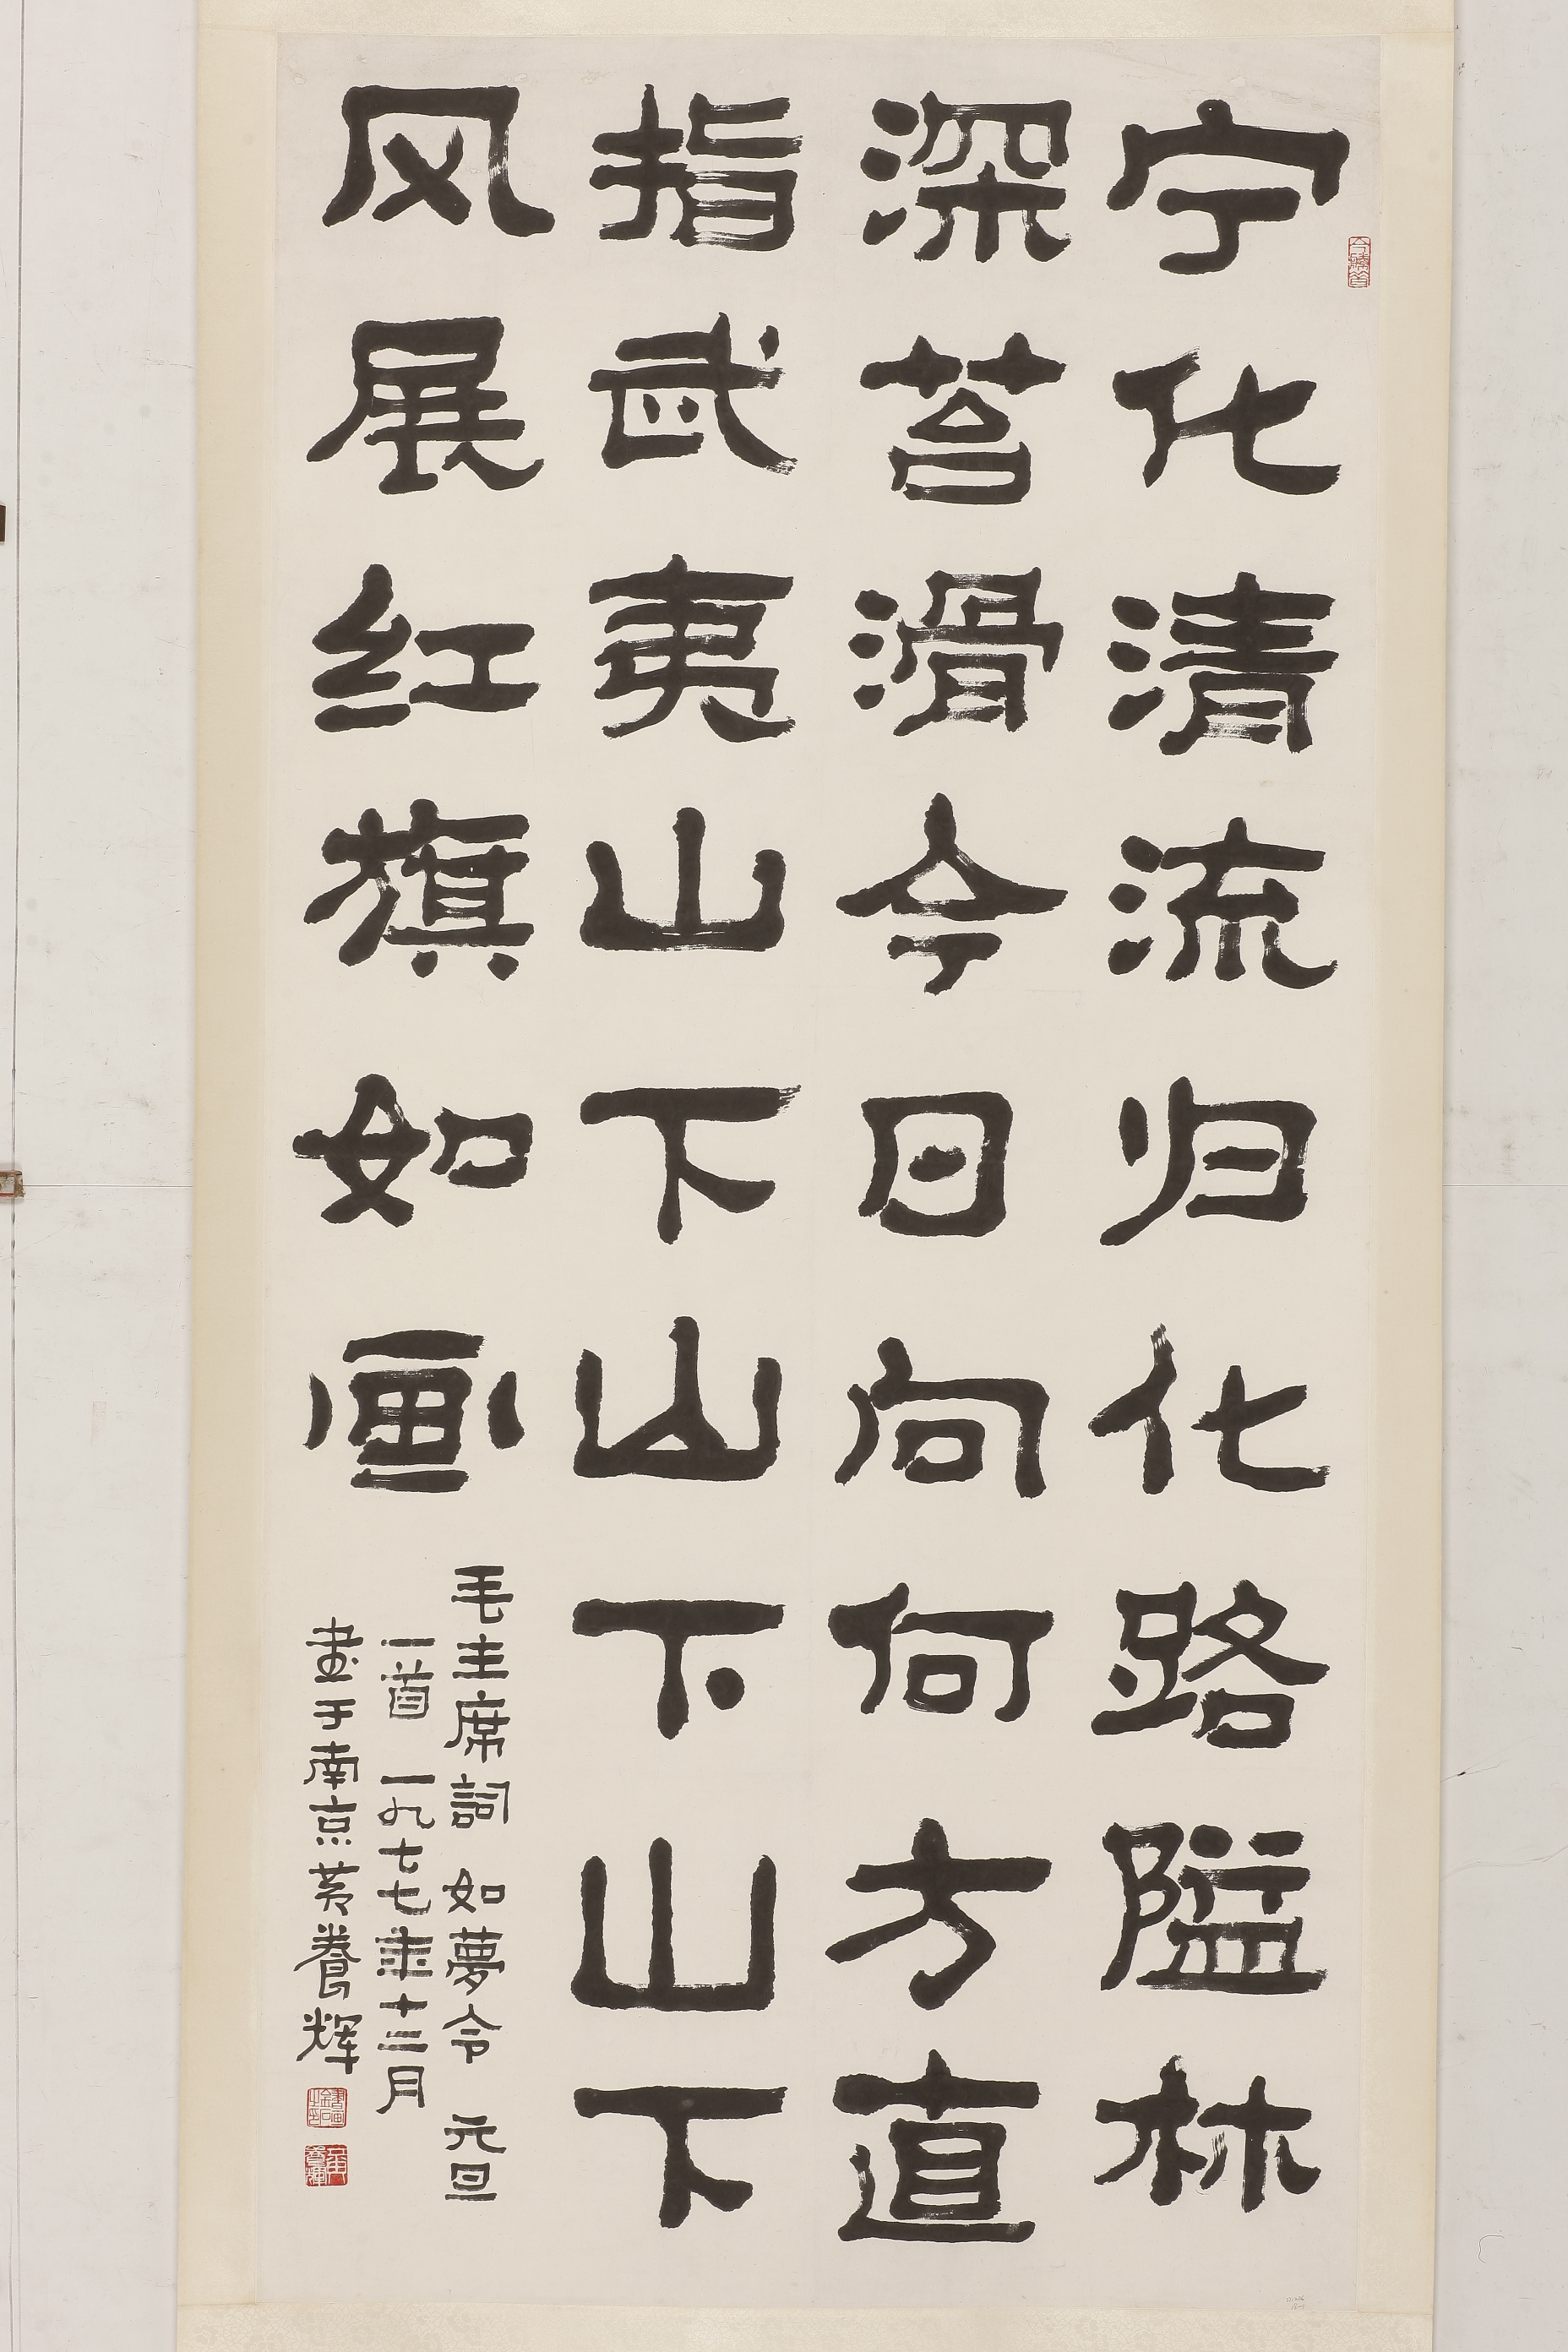 宁化清流归化路隘林
深苔滑今日向何方直
指武夷山下山下山下
风展红旗如画
毛主席詞 如夢令 元旦
一首 一九七七年十二月
書于南京黄養輝
今勝昔